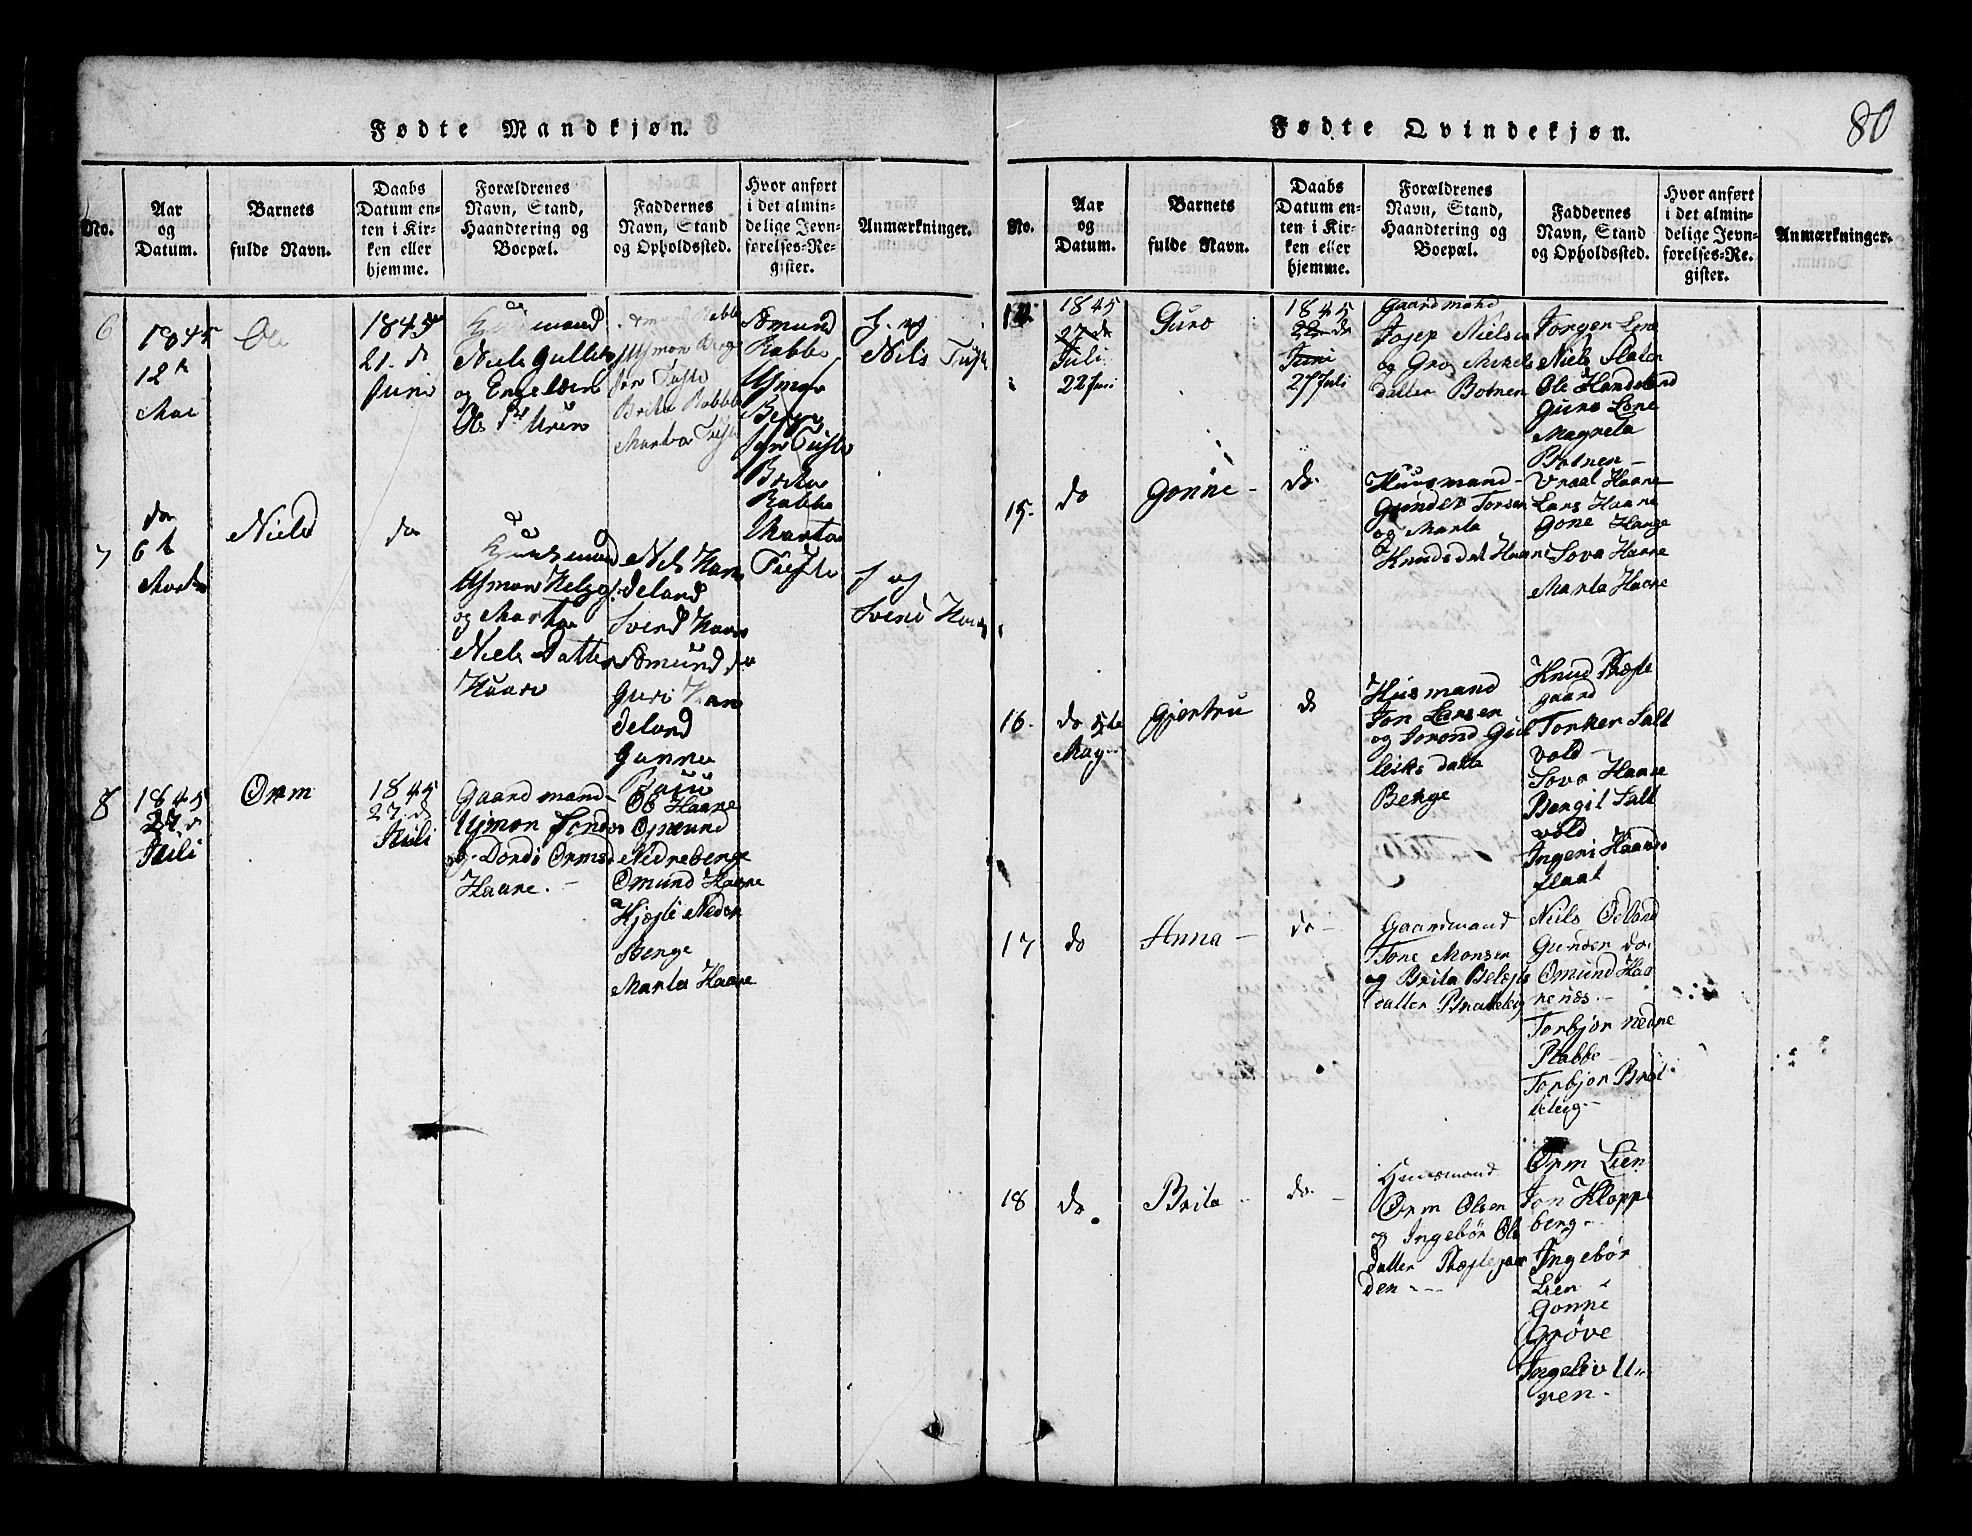 80
Fødte Mandkjøn.
No.
Aar
og
Datum.
Barnets
fulde Navn.
Daabs
Datum en-
ten i Kir-
ken eller
hjemme.
Forældrenes
Navn, Stand,
Haandtering og
Boepæl.
Faddernes
Navn, Stand
og Opholdssted.
Hvor anført
i det almin-
delige Jevn-
førelses-Re-
gister.
Anmærkninger.
6
1845
12te
Mai
Ole
1845
21. de
Juni
Huusmand
Niels
og
Brita Rabbe
Marta
Asmund
Rabbe
Brita
Rabbe
Marta
og
Nils
7
do
6te
Martz
Niels
do
Huusmand
og Marta
Niels Datter
Haare
Nils Han
deland
Svend Haare
Asmund do
Guri Han
deland
Gunne
og
Svend Haare
8
1845
de
Juli
Orm
1845
27. de
Juli
Gaardmand
og Dordi Orms
Haare. -
Ole Haare
Osmund
Nedreberge
Omund Haare
Nedre
Berge
Marta Haare
Fødte Qvindekjøn.
No.
Aar
og
Datum.
Barnets
fulde Navn.
Daabs
Datum en-
ten i Kir-
ken eller
hjemme.
Forældrenes
Navn, Stand,
Haandtering og
Boepæl.
Faddernes
Navn, Stand
og Opholdssted.
Hvor anført
i det almin-
delige Jevn-
førelses-Re-
gister.
Anmærkninger.
14.
1845
27 de
Juli
22 Juni
Guro
1845
22 de
Juni
27 Juli
Gaardmand
Josep Nielsen
og Gro Mikels
datter Botnen
Jorgen Lone
Niels Flaten
Ole Handeland
Guro Lone
Magreta
Botnen -
15.
do
Gonne -
do
Huusmand -
Gunder Torsen
og Marta
Knudsdat Haare
Vrael Haare
Lars Haare
Gone Hauge
Sova Haare
Marta Haare
16.
do 5te
May -
Gjertru
do
Husmand
Jon Larsen
og Torond
leiks datte
Berge
Knud Præste
gaard
Torker Salt
vold -
Sova Haare
Bergit Salt
vold
Ingeri Haare
flaat
17
do
Anna -
do -
Gaardmand
Tone Monsen
og Brita
datter Brateteig
Niels Ødland
Gunder do.
Omund Haa
renæs. -
Torbjor Nedre
Rabbe
Torbjor Brat
teteig -
18
do
Brita
do. -
Huusmand
Orm Olsen
og Ingebør Ols
datter Præstegaar
den - - -
Orm Lien
Jon Klopp
berg -
Ingebør
Lien
Gonne
Grøve
Ingeliv U-
ren -